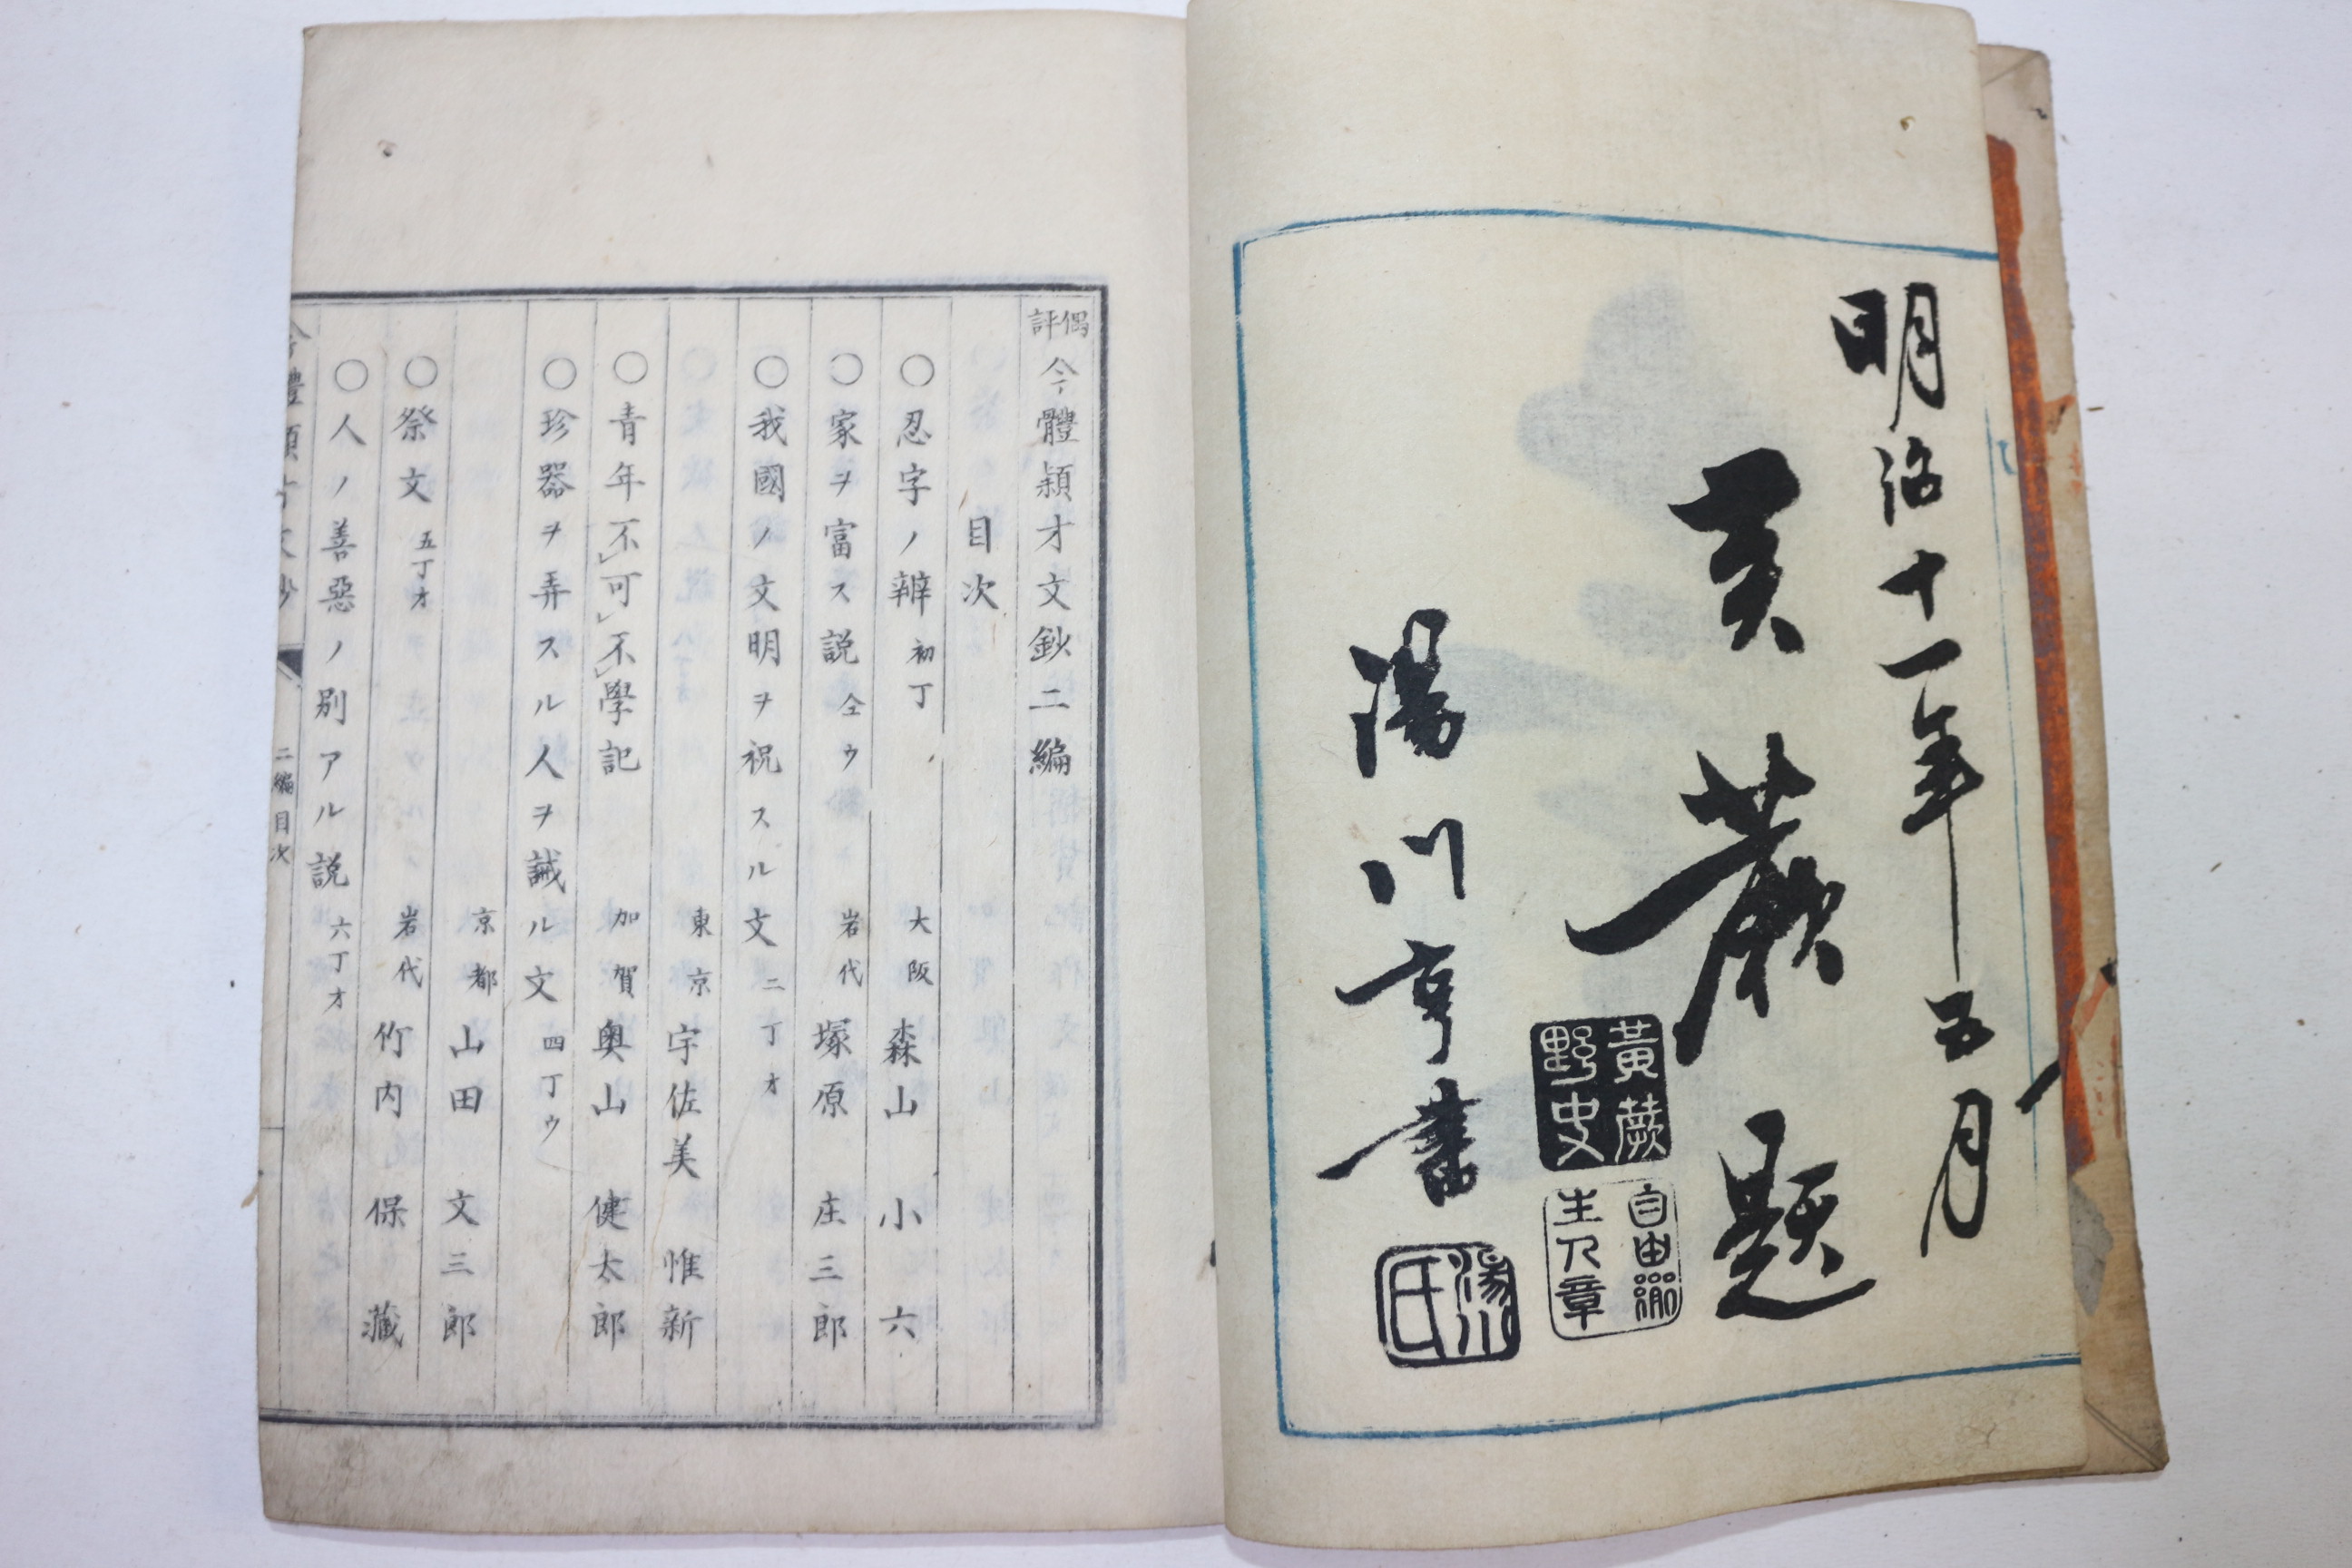 明治十一年五月
黄蕨題
黃蕨
野史
自由
主人章
湯川亨書
湯川
氏
偶評 今體穎才文鈔二編
目次
○忍字ノ辨 初丁 大阪 森山 小六
○家ヲ富ス説 仝ウ 岩代 塚原 庄三郎
○我國ノ文明ヲ祝スル文 二丁オ
東京 宇佐美 惟新
○青年不可不學記 加賀 奥山 健太郎
○珍器ヲ弄スル人ヲ誡ル文 四丁ウ
京都 山田 文三郎
○祭文 五丁オ 岩代 竹内 保藏
○人ノ善惡ノ別アル説 六丁オ
二編目次